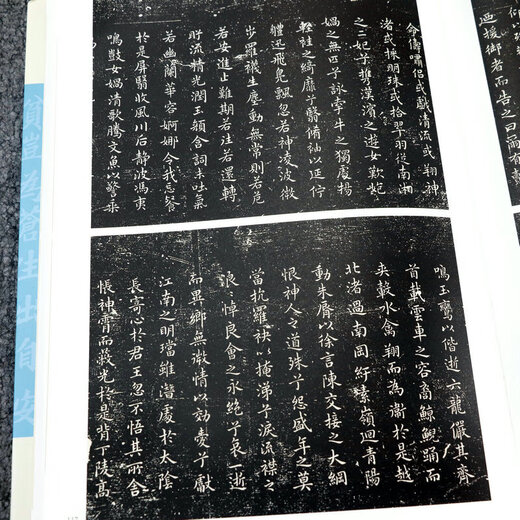 迺援御者而告之曰爾有
命儔嘯侶或戲清流或翔神
渚或採明珠或拾翠羽從南湘
之二妃兮攜漢濱之遊女歎匏
媧之無匹兮詠牽牛之獨處揚
輕袿之綺靡兮翳脩袖以延佇
體迅飛鳧飄忽若神凌波微
步羅襪生塵動無常則若危
若安進止難期若往若還轉
盻流精光潤玉顏含詞未吐氣
若幽蘭華容婀娜令我忘飡
於是屏翳收風川后靜波馮夷
鳴鼓女媧清歌騰文魚以警乘
鳴玉鸞以偕逝六龍儼其齊
首載雲車之容裔鯨鯢踊而
夾轂水禽翔而為衞於是越
北渚過南岡紆素領迴青陽
動朱脣以徐言陳交接之大綱
恨神人之道殊兮怨盛年之莫
當抗羅袂以掩涕兮淚流襟之
浪浪悼良會之永絕兮哀一逝
而異鄉無微情以効愛兮獻
江南之明璫雖潛處於太陰
長寄心於君王忽不悟其所舍
悵神霄而蔽光於是背下陵高